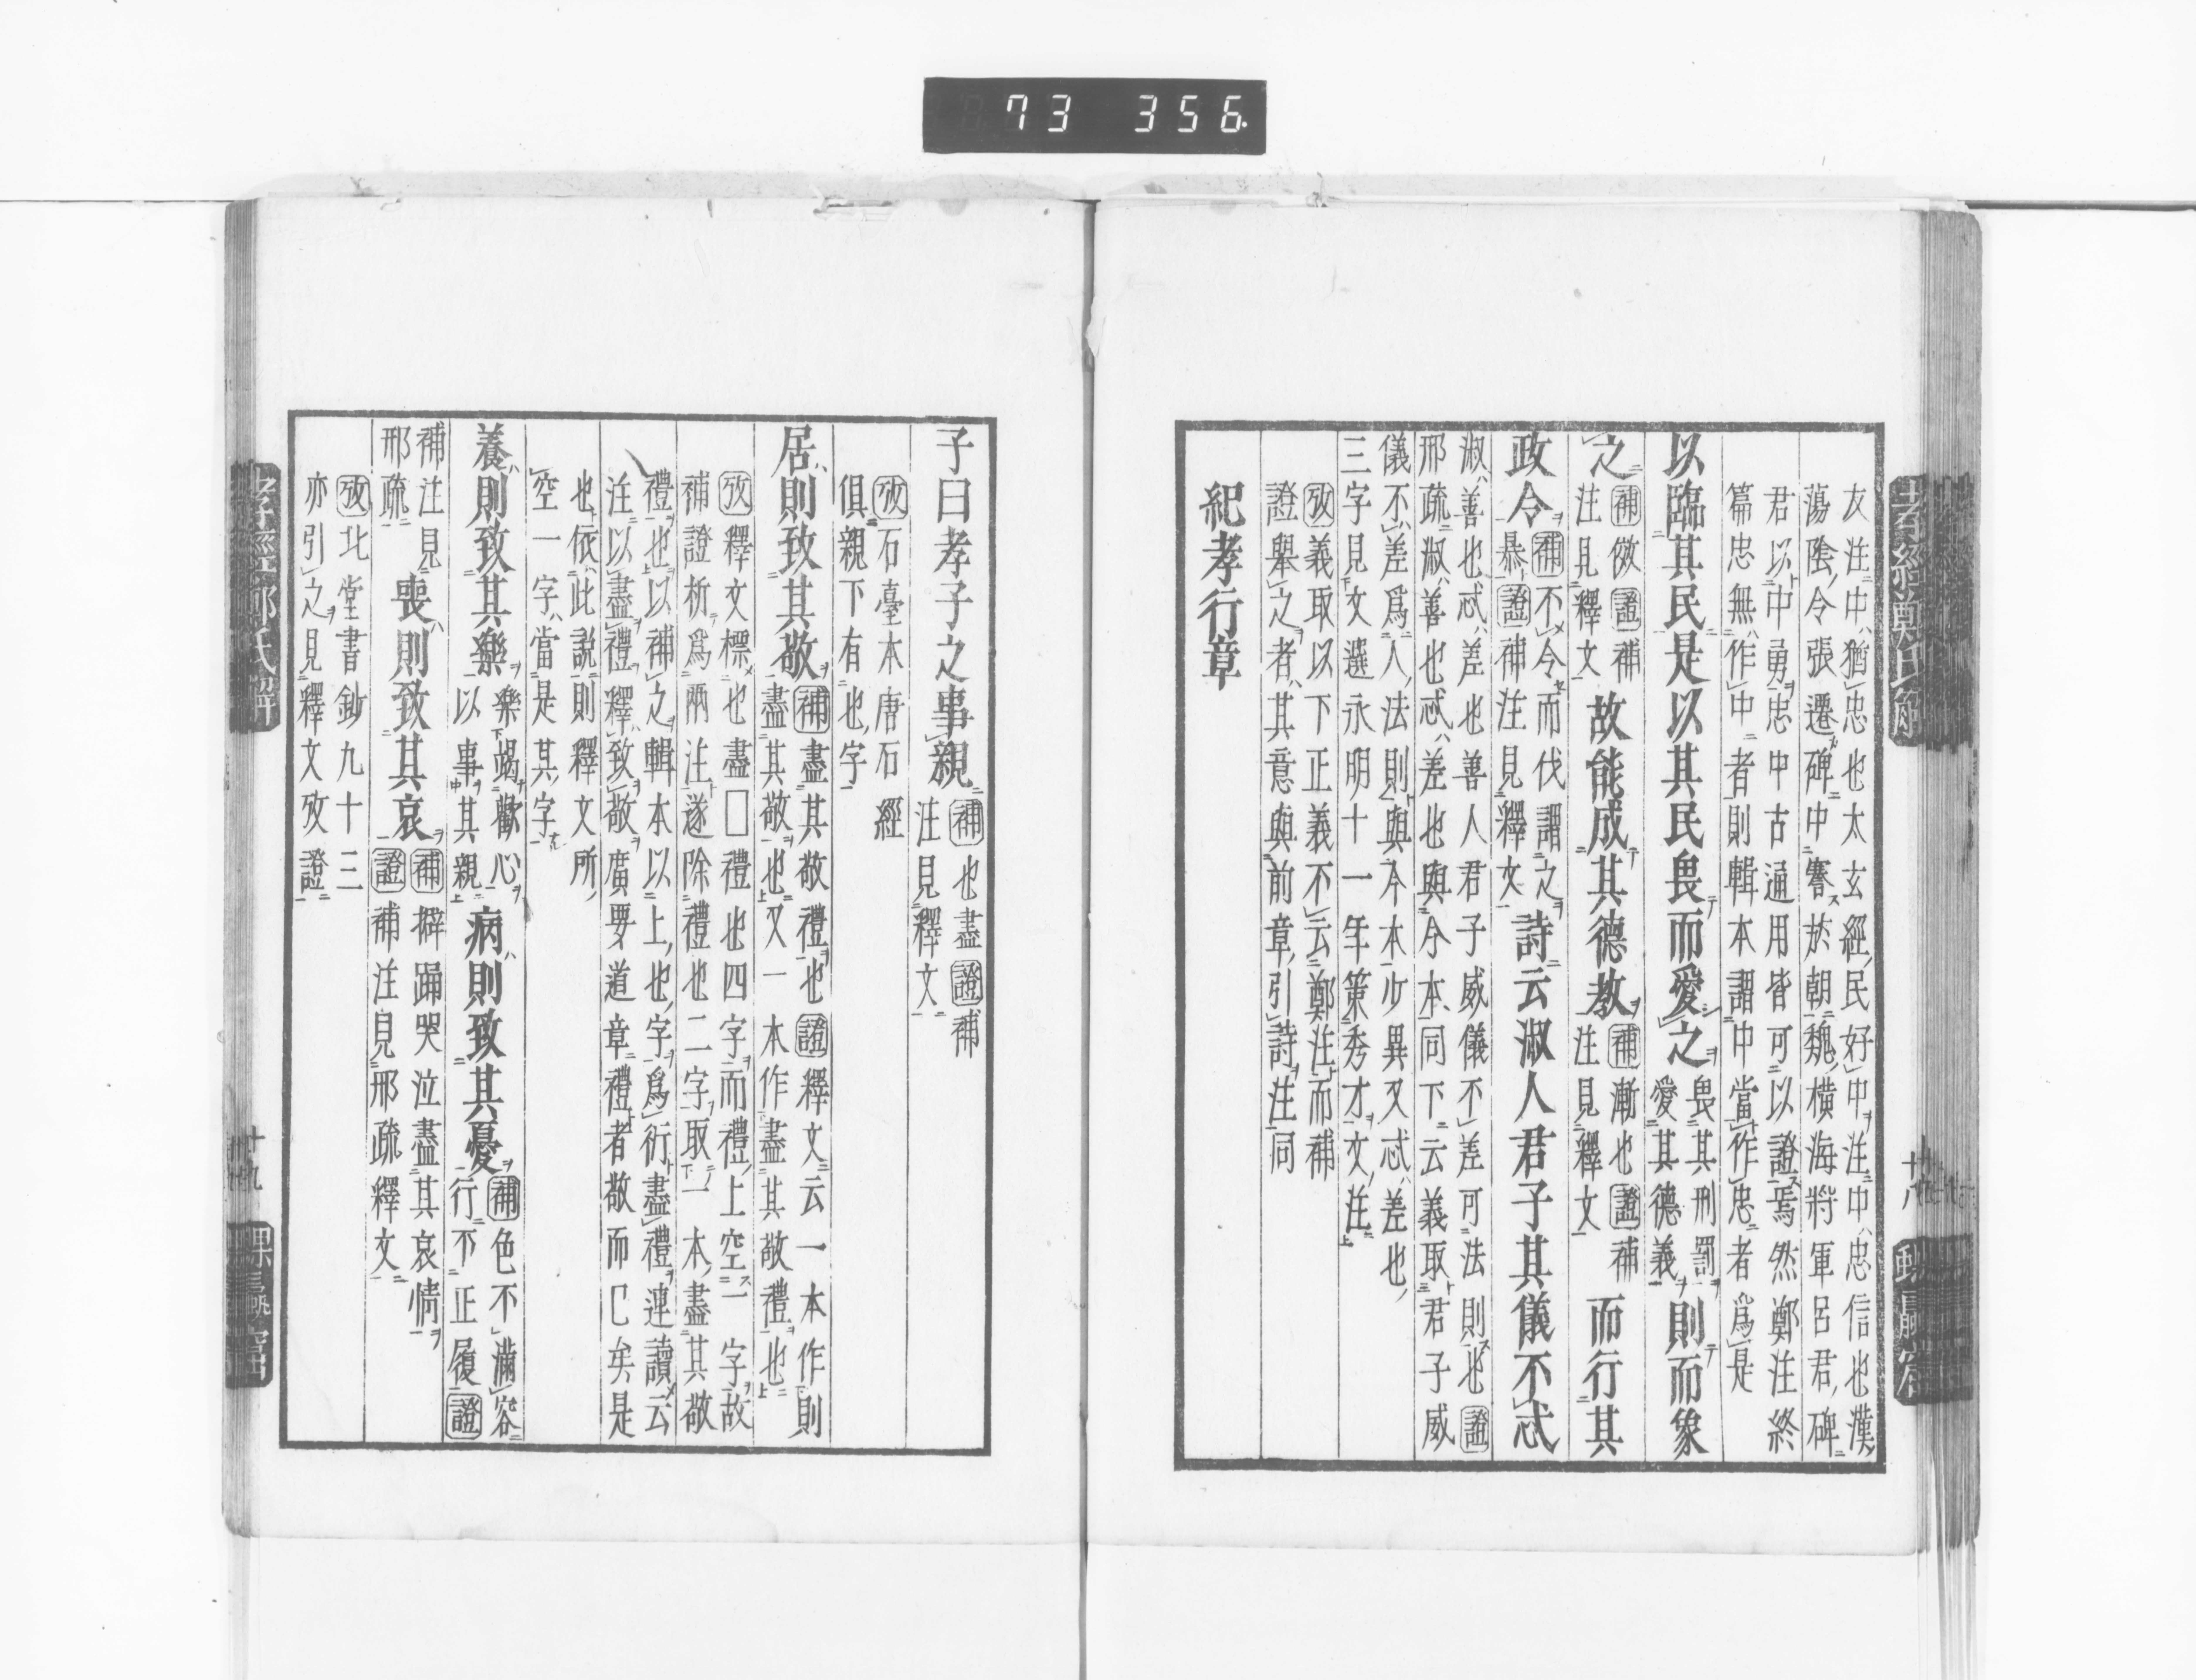 73 356
友注中猶忠也太玄經民好中注中忠信也漢
蕩陰令張遷碑中謇於朝魏橫海將軍呂君碑
君以中勇忠中古通用皆可以證焉然鄭注終
篇忠無作中者則輯本謂中當作忠者爲是
以臨其民是以其民畏而愛之 畏其刑罰 愛其德義 則而象
之 補傚證補 注見釋文 故能成其德教 補漸也證補 注見釋文 而行其
政令 補不令而伐謂之 暴證補注見釋文 詩云淑人君子其儀不忒
淑善也忒差也善人君子威儀不差可法則也證
邢疏淑善也忒差也與今本同下云義取君子威
儀不差爲人法則與今本少異又忒差也
三字見文選永明十一年策秀才文注
攷義取以下正義不云鄭注而補
證舉之者其意與前章引詩注同
紀孝行章
孝經鄭氏解
十八
子曰孝子之事親 補也盡證補 注見釋文
攷石臺本唐石經
俱親下有也字
居則致其敬 補盡其敬禮也證釋文云一本作則
盡其敬也又一本作盡其敬禮也
攷釋文標也盡□禮也四字而禮上空一字故
補證析爲兩注遂除禮也二字取一本盡其敬
禮也以補之輯本以上也字爲衍盡禮連讀云
注以盡禮釋致敬廣要道章禮者敬而已矣是
也依此說則釋文所
空一字當是其字
養則致其樂 樂竭歡心 以事其親 病則致其憂 補色不滿容 行不正履證
補注見 邢疏 喪則致其哀 補擗踊哭泣盡其哀情 證補注見邢疏釋文
攷北堂書鈔九十三
亦引之見釋文攷證
孝經鄭氏解
十九